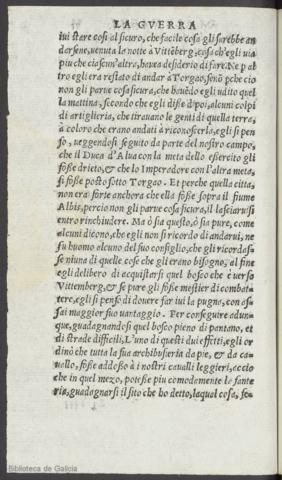 LA GVERRA
iui stare cosi al sicuro, che facile cosa gli sarebbe an
darsene, venuta la notte à Vittēberg, cosa ch'egli uia
piu che ciascun'altra, haueа desiderio di fare. Ne p al
tro egli era restato di andar à Torgao, senō pche cio
non gli parue cosa sicura, che hauēdo egli udito quel
la mattina, secondo che egli disse dipoi, alcuni colpi
di artiglieria, che tirauano le genti di quella terra,
à coloro che erano andati à riconoscerla, egli si pen
so, ueggendosi seguito da parte del nostro campo,
che il Duca d'Alua con la meta dello esercito gli
fosse drieto, & che lo Imperadore con l'altra meta,
si fosse posto sotto Torgao. Et perche quella citta,
non era forte anchora che ella fosse sopra il fiume
Albis, percio non gli parue cosa sicura, il lasciarsi
entro rinchiudere. Ma ò sia questo, ò sia pure, come
alcuni dicono, che egli non si ricordo di andarui, ne
fu huomo alcuno del suo consiglio, che gli ricordas
se niuna di quelle cose che gli erano bisogno, al fine
egli delibero di acquistarsi quel bosco che è uerso
Vittemberg, & se pure gli fosse mestier di combat
tere, egli si pensò di douere far iui la pugna, con as
sai maggior suo uantaggio. Per conseguire adun-
que, guadagnandosi quel bosco pieno di pantano, et
di strade difficili, L'uno di questi dui effetti, egli or
dinò che tutta la sua archibuseria da pie, & da ca-
uallo, fosse addosso à i nostri caualli leggieri, accio
che in quel mezo, potesse piu comodamente lo fante
ria, guadagnarsi il sito che ho detto, laqual cosa, se-
Biblioteca de Galicia